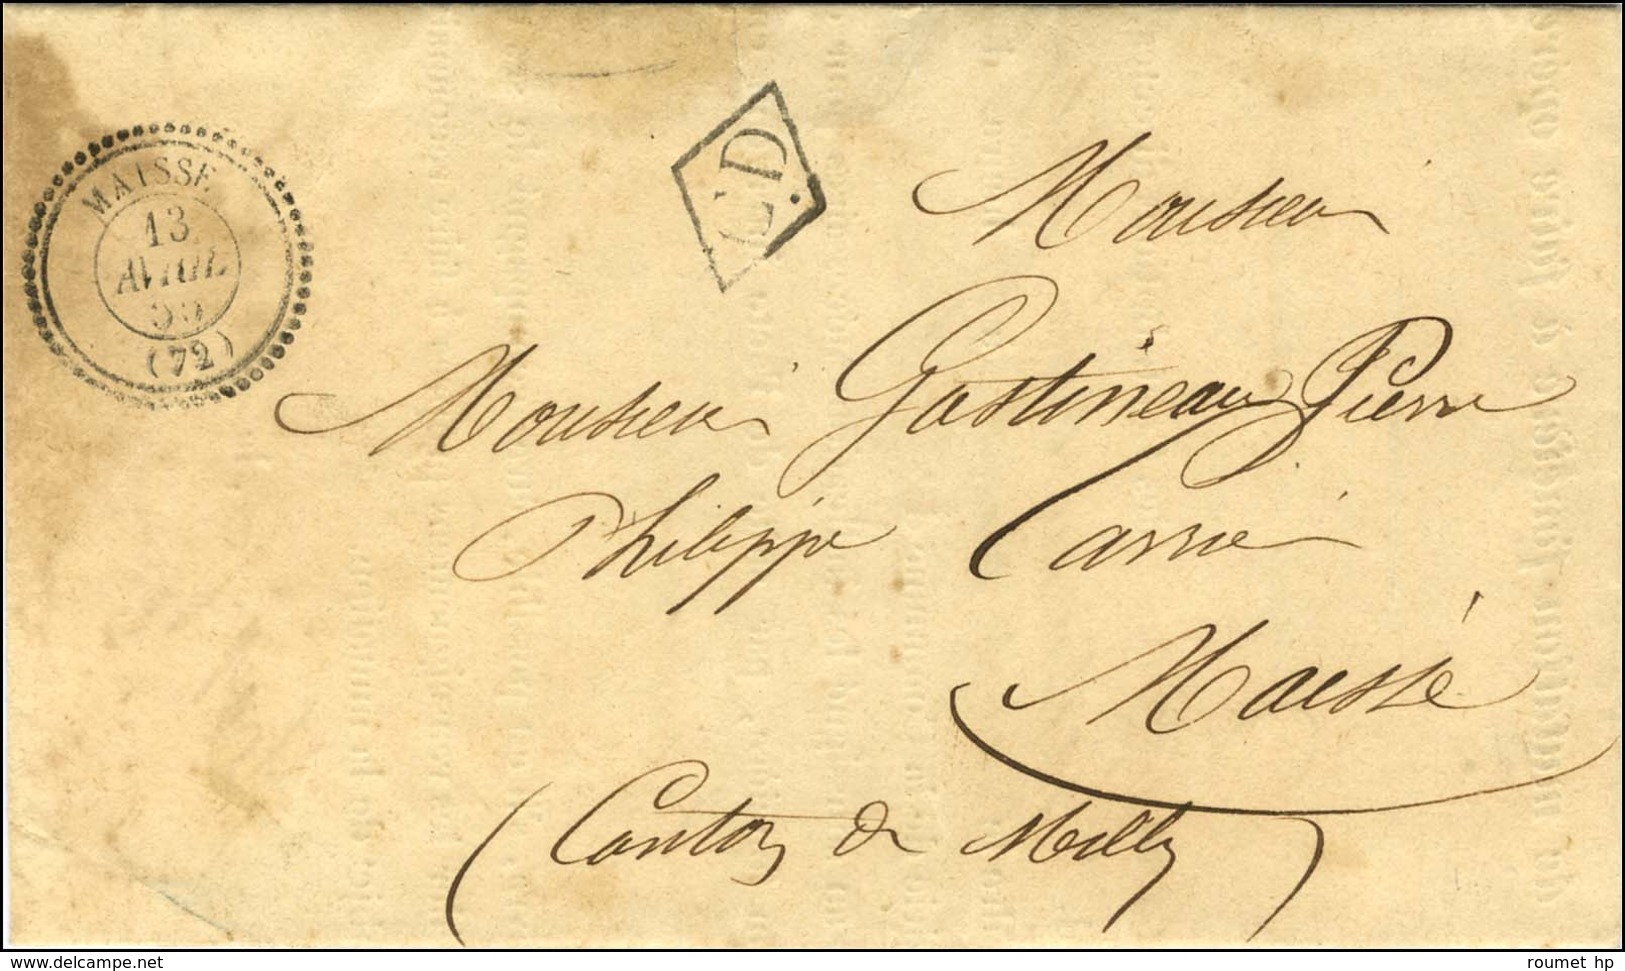 MAISSE
13
AVRIL
(72)
C.D
Monsieur
Monsieur Gastineau Pierre
Philippe Carrier
Maisse
(Canton de Milly)
www.delcampe.net
roumet hp